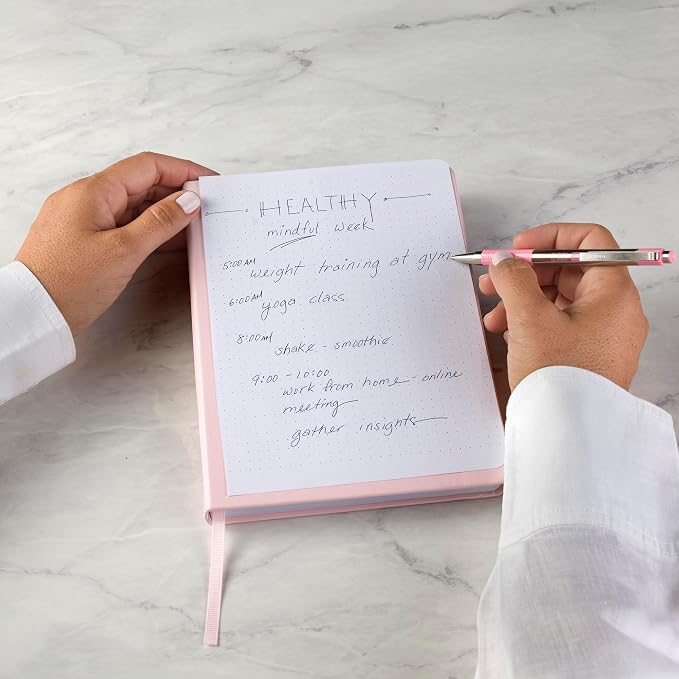 HEALTHY
mindful week
5:00 AM weight training at gym
6:00 AM yoga class
8:00 AM
shake - smoothie
9:00 - 10:00
work from home - online
meeting
gather insights